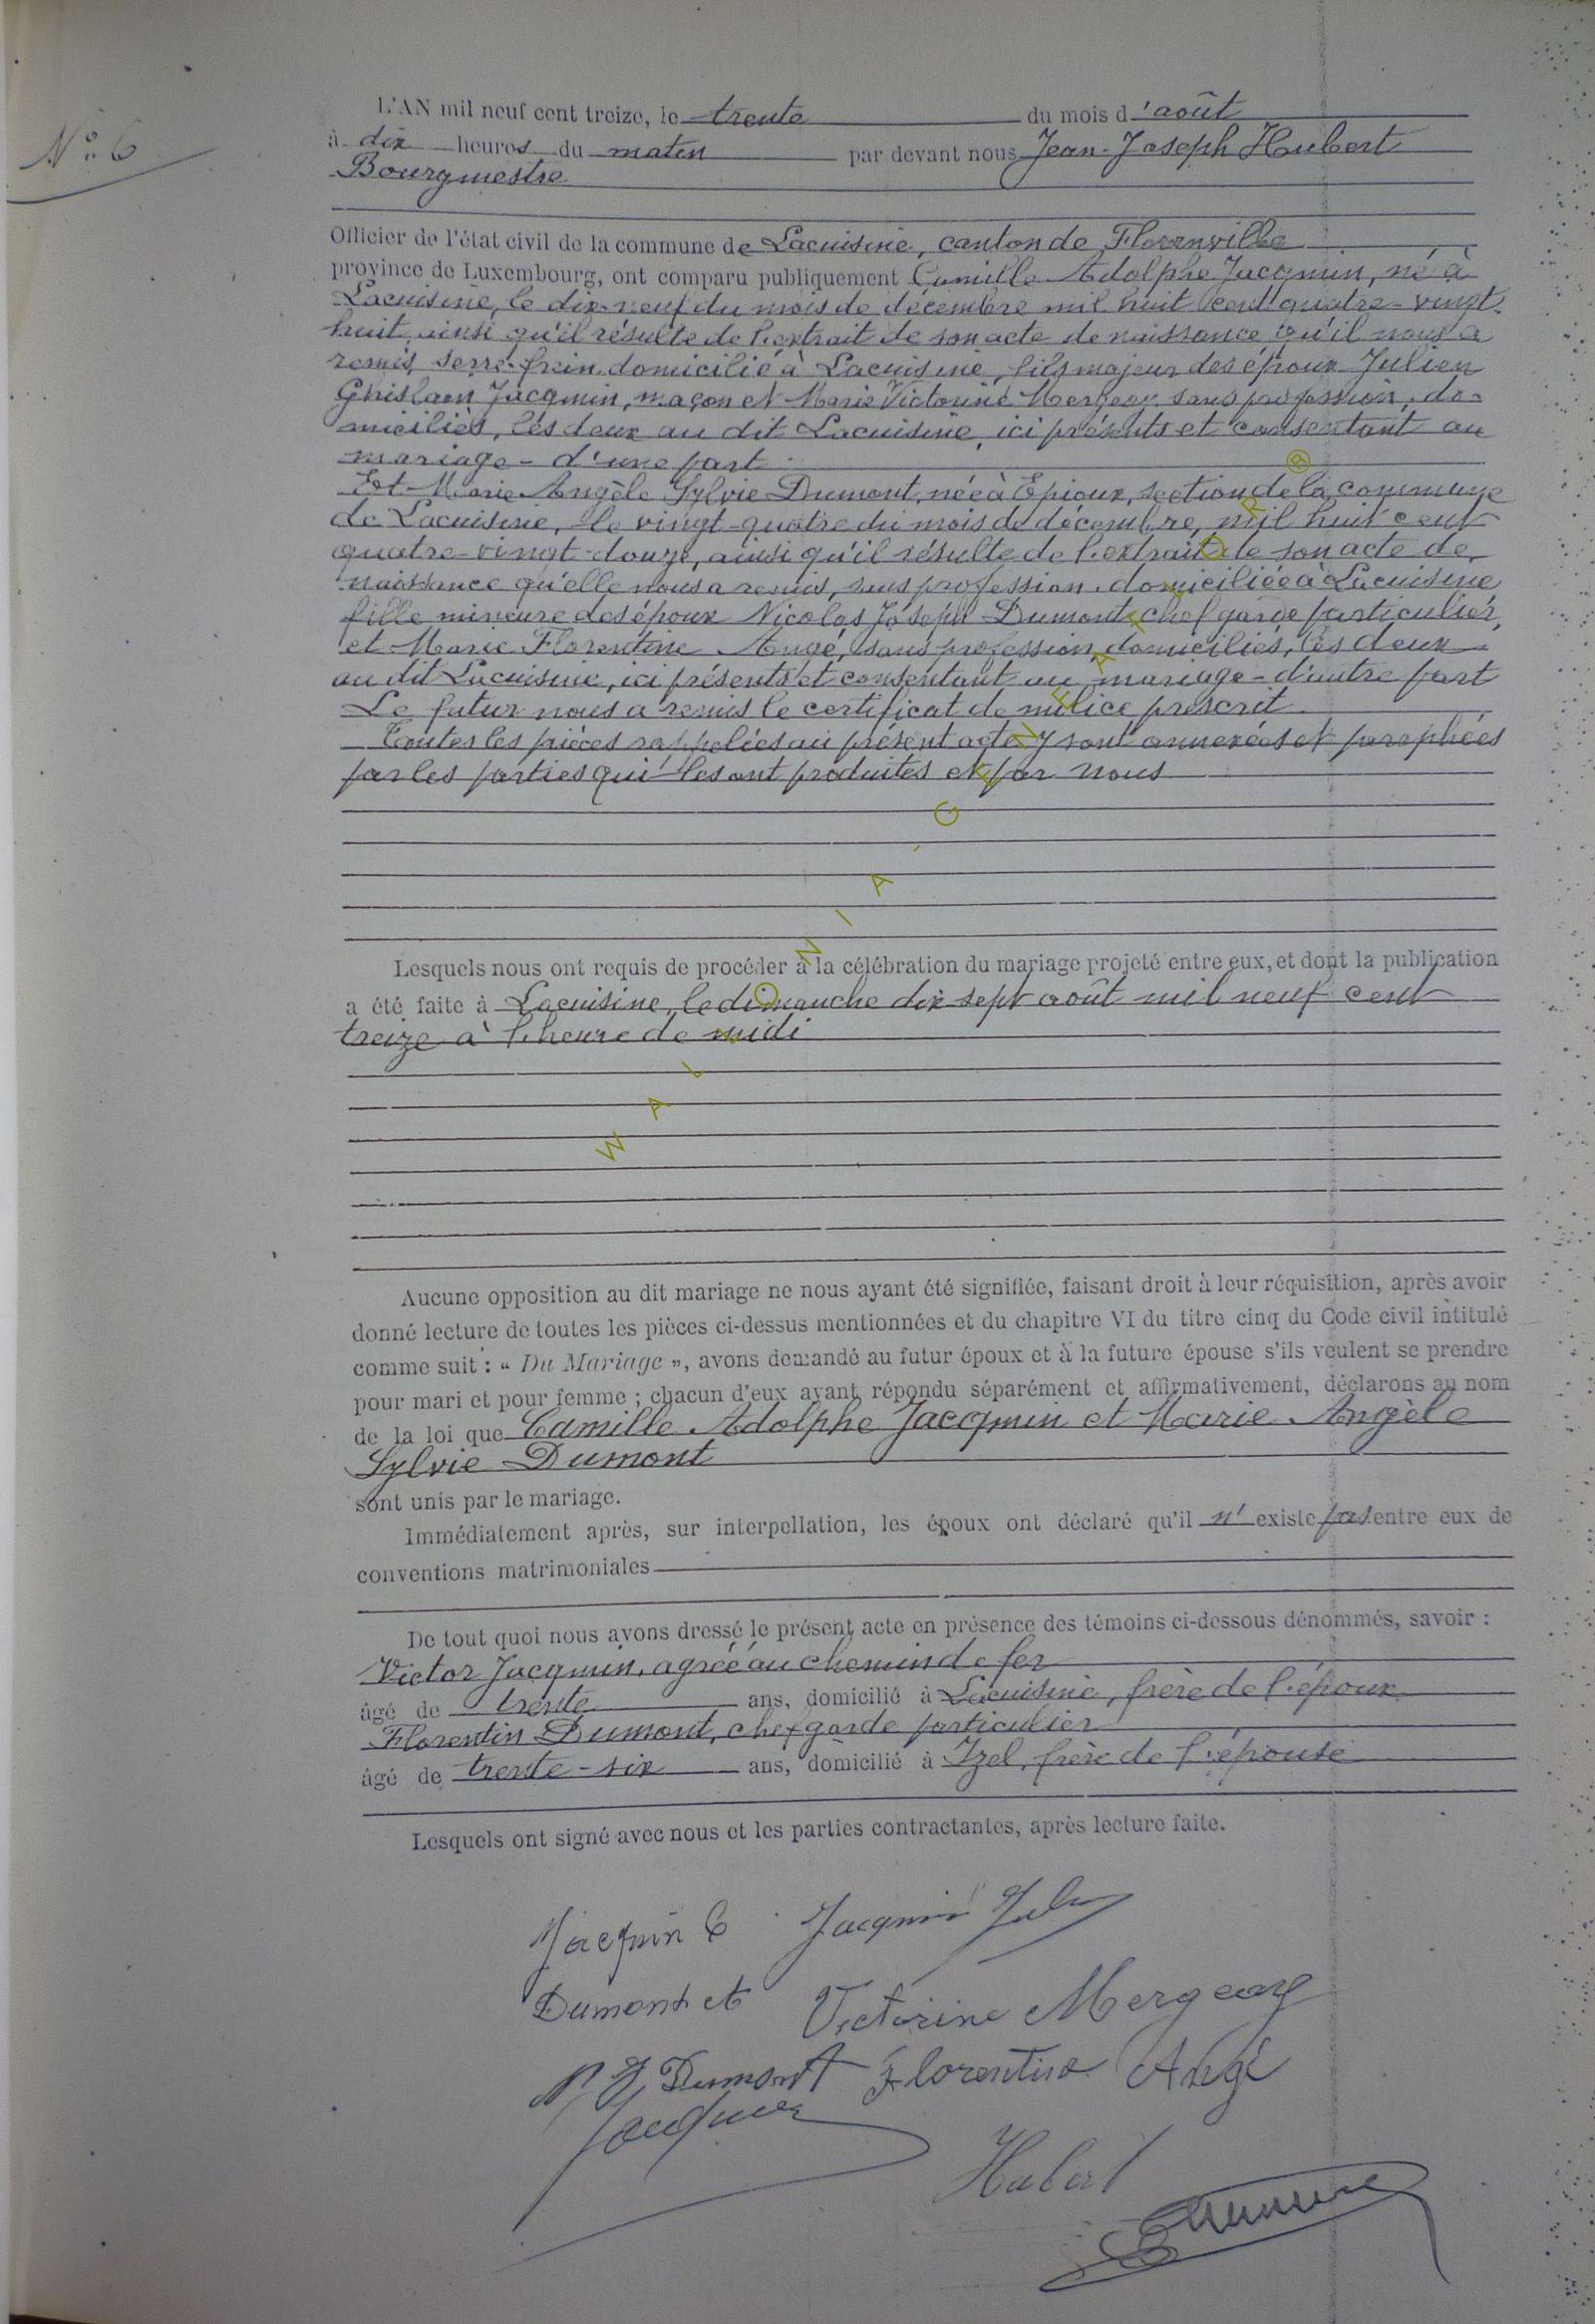 N° 6
L'AN mil neuf cent treize, le trente du mois d'août
à dix heures du matin par devant nous Jean-Joseph Hubert
Bourgmestre
Officier de l'état civil de la commune de Lacuisine, canton de Florenville
province de Luxembourg, ont comparu publiquement Camille Adolphe Jacqmin, né à
Lacuisine, le dix-neuf du mois de décembre mil huit cent quatre-vingt-
huit, ainsi qu'il résulte de l'extrait de son acte de naissance qu'il nous a
remis, serre-frein, domicilié à Lacuisine, fils majeur des époux Julien
Ghislain Jacqmin, maçon et Marie Victorine Mergeay, sans profession, do-
miciliés, les deux au dit Lacuisine, ici présents et consentant au
mariage - d'une part.
Et Marie Angèle Sylvie Dumont, née à Epioux, section de la commune
de Lacuisine, le vingt-quatre du mois de décembre, mil huit cent
quatre-vingt-douze, ainsi qu'il résulte de l'extrait de son acte de
naissance qu'elle nous a remis, sans profession, domiciliée à Lacuisine
fille mineure des époux Nicolas Joseph Dumont, chef garde particulier,
et Marie Florentine Angé, sans profession, domiciliés, les deux
au dit Lacuisine, ici présents et consentant au mariage - d'autre part
Le futur nous a remis le certificat de milice prescrit.
Toutes les pièces rappelées au présent acte y sont annexées et paraphées
par les parties qui les ont produites et par nous
Lesquels nous ont requis de procéder à la célébration du mariage projeté entre eux, et dont la publication
a été faite à Lacuisine, le dimanche dix-sept août mil neuf cent
treize à l'heure de midi
Aucune opposition au dit mariage ne nous ayant été signifiée, faisant droit à leur réquisition, après avoir
donné lecture de toutes les pièces ci-dessus mentionnées et du chapitre VI du titre cinq du Code civil intitulé
comme suit : « Du Mariage », avons demandé au futur époux et à la future épouse s'ils veulent se prendre
pour mari et pour femme ; chacun d'eux ayant répondu séparément et affirmativement, déclarons au nom
de la loi que Camille Adolphe Jacqmin et Marie Angèle
Sylvie Dumont
sont unis par le mariage.
Immédiatement après, sur interpellation, les époux ont déclaré qu'il n'existe pas entre eux de
conventions matrimoniales
De tout quoi nous avons dressé le présent acte en présence des témoins ci-dessous dénommés, savoir :
Victor Jacqmin, agréé au chemin de fer
âgé de trente ans, domicilié à Lacuisine, frère de l'époux
Florentin Dumont, chef garde particulier
âgé de trente-six ans, domicilié à Izel, frère de l'épouse
Lesquels ont signé avec nous et les parties contractantes, après lecture faite.
Jacqmin C Jacqmin Jul
Dumont Victorine Mergeay
N J Dumont Florentine Angé
Jacqmin
Hubert
WALLONIA-GENEALOGOR®